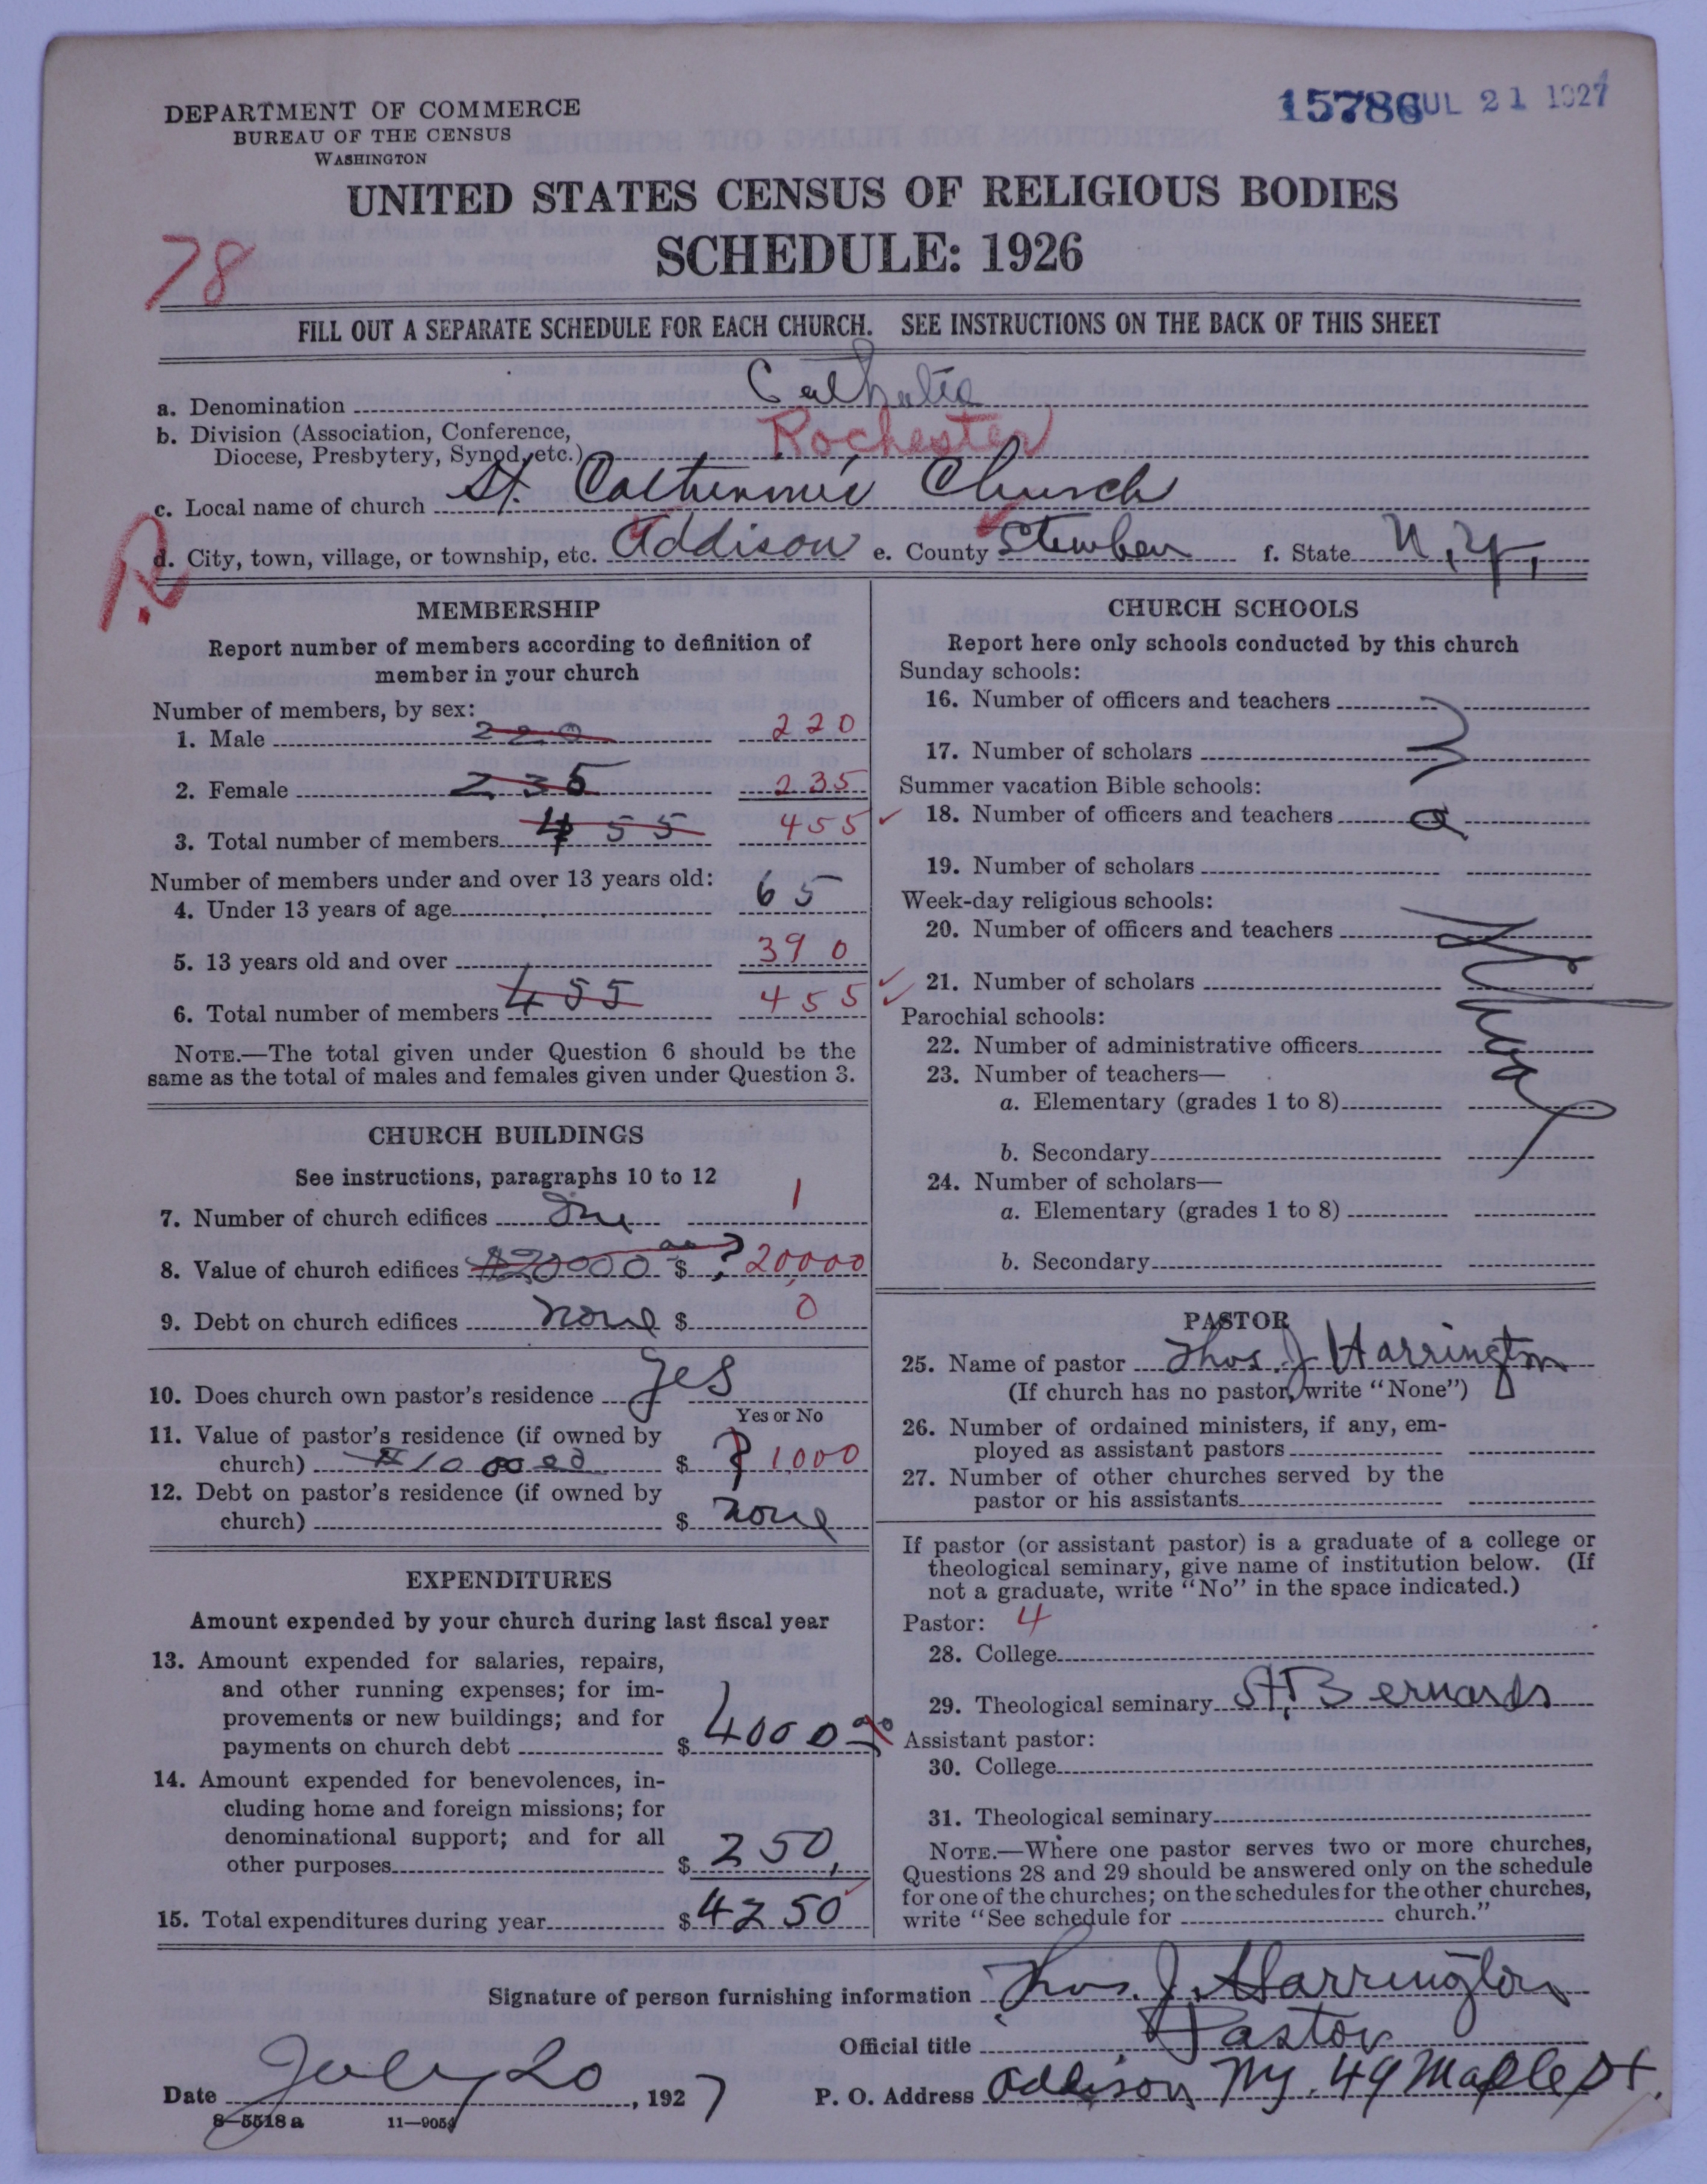 DEPARTMENT OF COMMERCE
BUREAU OF THE CENSUS
WASHINGTON
15786 JUL 21 1927
UNITED STATES CENSUS OF RELIGIOUS BODIES
SCHEDULE: 1926
78
FILL OUT A SEPARATE SCHEDULE FOR EACH CHURCH. SEE INSTRUCTIONS ON THE BACK OF THIS SHEET
a. Denomination Catholic
b. Division (Association, Conference,
Diocese, Presbytery, Synod, etc.) Rochester
c. Local name of church St. Church
R
d. City, town, village, or township, etc. Addison e. County Steuben f. State N.Y.
MEMBERSHIP
Report number of members according to definition of
member in your church
Number of members, by sex:
1. Male 220 220
2. Female 235 235
3. Total number of members 455 455
Number of members under and over 13 years old:
4. Under 13 years of age 65
5. 13 years old and over 390
6. Total number of members 455 455
NOTE.—The total given under Question 6 should be the
same as the total of males and females given under Question 3.
CHURCH BUILDINGS
See instructions, paragraphs 10 to 12
7. Number of church edifices One 1
8. Value of church edifices $20000 00 $ ? 20,000
9. Debt on church edifices none $ 0
10. Does church own pastor's residence Yes
Yes or No
11. Value of pastor's residence (if owned by
church) $10 00 00 $ ? 1,000
12. Debt on pastor's residence (if owned by
church) $ none
EXPENDITURES
Amount expended by your church during last fiscal year
13. Amount expended for salaries, repairs,
and other running expenses; for im-
provements or new buildings; and for
payments on church debt $ 4000 00
14. Amount expended for benevolences, in-
cluding home and foreign missions; for
denominational support; and for all
other purposes $ 250,
15. Total expenditures during year $ 4250
CHURCH SCHOOLS
Report here only schools conducted by this church
Sunday schools:
16. Number of officers and teachers
17. Number of scholars
Summer vacation Bible schools:
18. Number of officers and teachers
19. Number of scholars
Week-day religious schools:
20. Number of officers and teachers
21. Number of scholars
Parochial schools:
22. Number of administrative officers
23. Number of teachers—
a. Elementary (grades 1 to 8)
b. Secondary
24. Number of scholars—
a. Elementary (grades 1 to 8)
b. Secondary
PASTOR
25. Name of pastor Thos. J Harrington
(If church has no pastor, write "None")
26. Number of ordained ministers, if any, em-
ployed as assistant pastors
27. Number of other churches served by the
pastor or his assistants
If pastor (or assistant pastor) is a graduate of a college or
theological seminary, give name of institution below. (If
not a graduate, write "No" in the space indicated.)
Pastor: 4
28. College
29. Theological seminary St. Bernards
Assistant pastor:
30. College
31. Theological seminary
NOTE.—Where one pastor serves two or more churches,
Questions 28 and 29 should be answered only on the schedule
for one of the churches; on the schedules for the other churches,
write "See schedule for church."
Signature of person furnishing information Thos. J. Harrington
Official title Pastor
Date July 20, 1927 P. O. Address Addison NY. 49 Maple St.
8—5518 a 11—9054